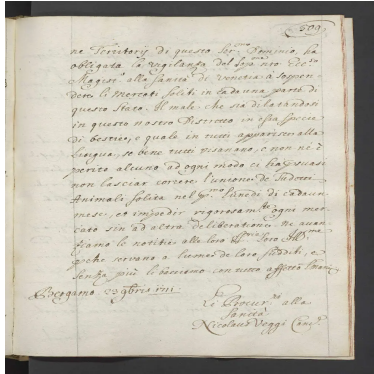 509
ne Territorij di questo Ser.mo Dominio, ha
obligata la vigilanza del sop.a nto Ecc.mo
Magist.o alla sanità di Venetia à sospen-
dere li Mercati soliti in cadauna parte di
questo Stato. Il male che si và dilatandosi
in questo nostro Distretto in essa specie
di bestie, e quale in tutti apparisce alla
lingua, se bene tutti risanano, e non nè è
perito alcuno ad ogni modo ci ha persuasi
non lasciar correre l'unione de sudetti
Animali solita nel p.mo lunedì di cadaun
mese, et impedir rigorosam.te ogni mer-
cato sin ad altra deliberatione. Ne avan-
ziamo le notitie alla loro
perche servano a lume de loro sudditi, e
senza più le riveriamo con tutto affetto
Bergamo 23 9bris
Li Procur.ri alla
Sanità
Nicolaus Veggi Canc.s